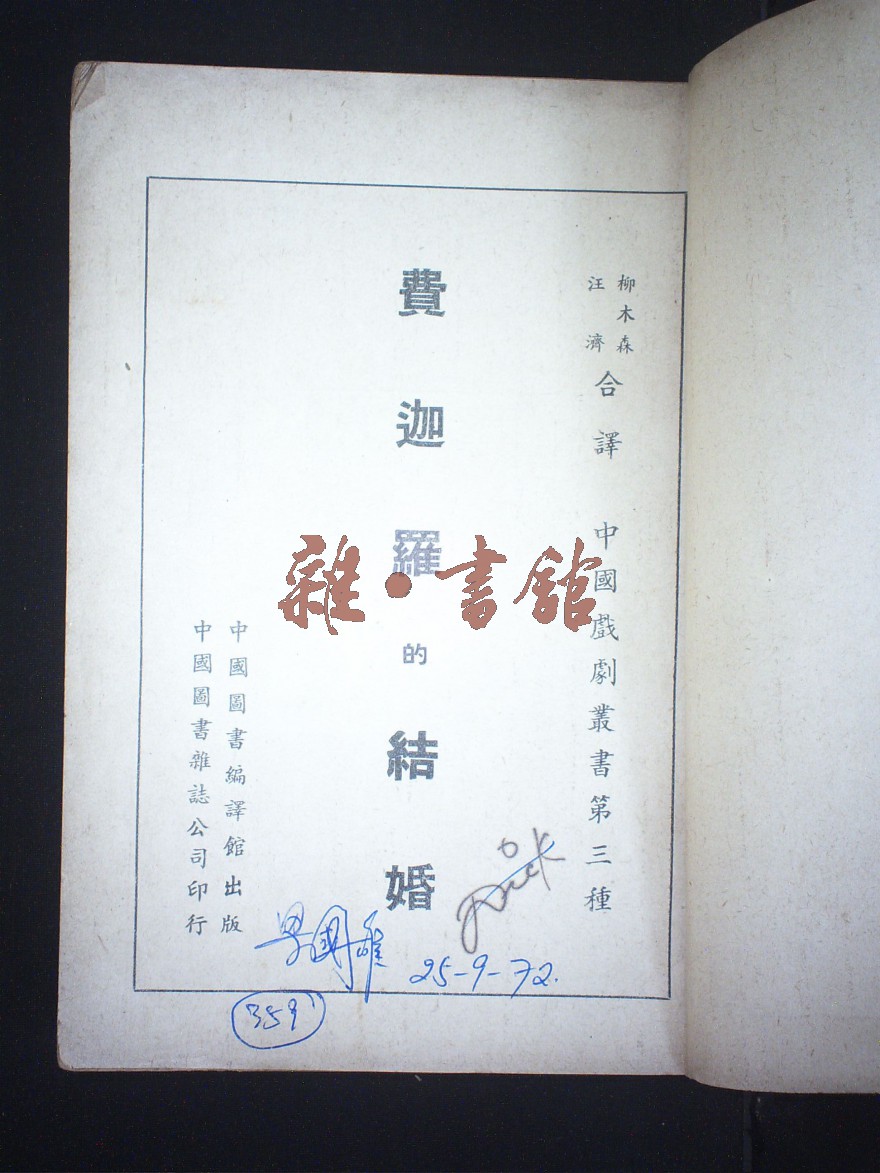 柳木森
汪濟
合譯 中國戲劇叢書第三種
費迦羅的結婚
中國圖書編譯館出版
中國圖書雜誌公司印行
雜·書館
Dick
25-9-72.
359